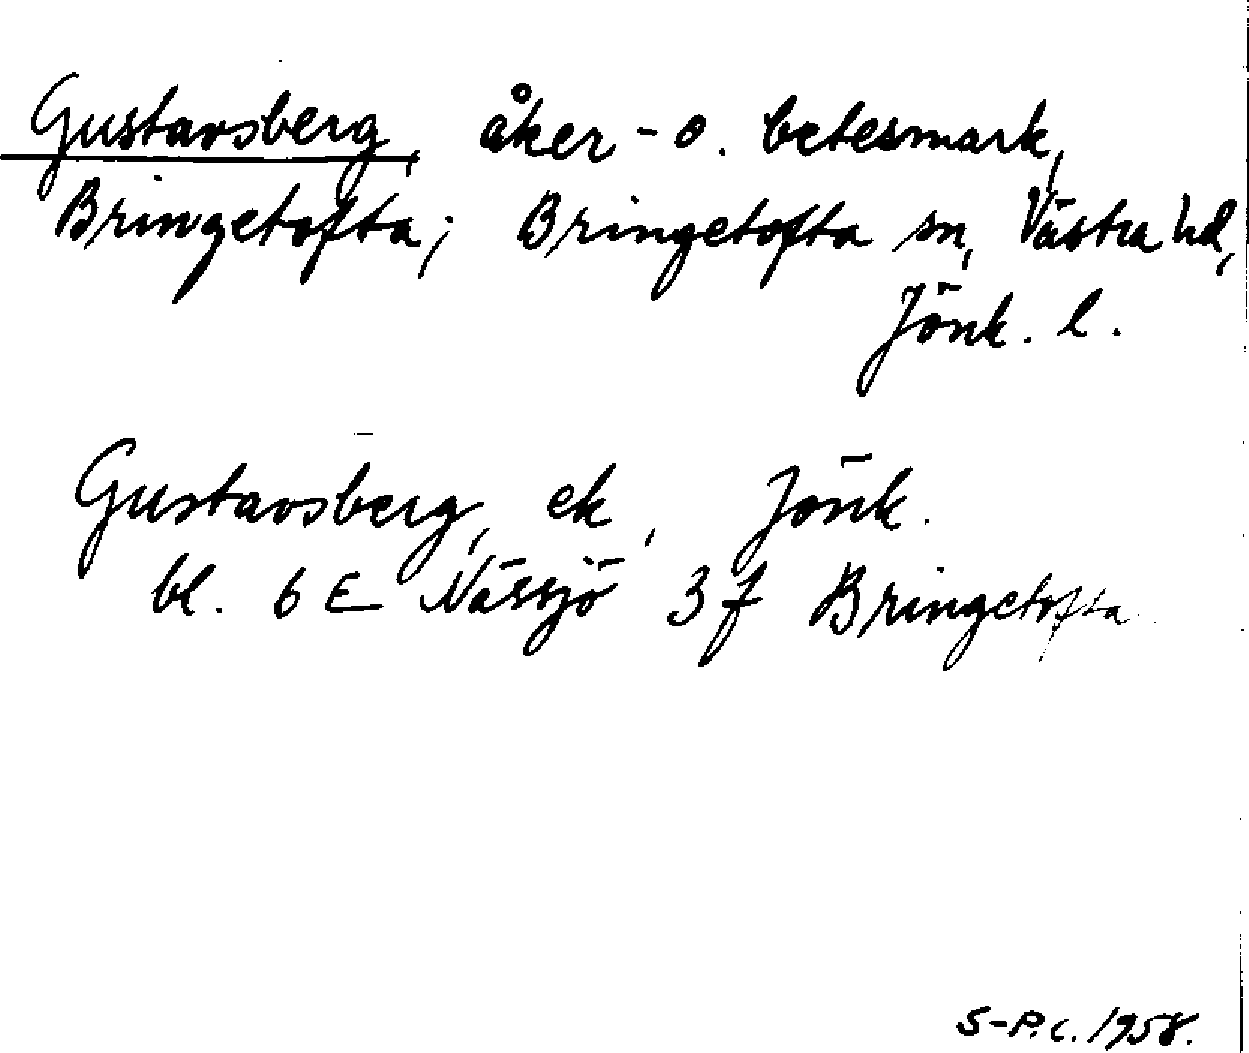 Gustavsberg, åker- o. betesmark,
Bringetofta; Bringetofta sn, Västra hd,
Jönk. l.
Gustavsberg, ek, Jönk.
bl. 6 E Nässjö 3 f Bringetofta
S-P.C. 1958.